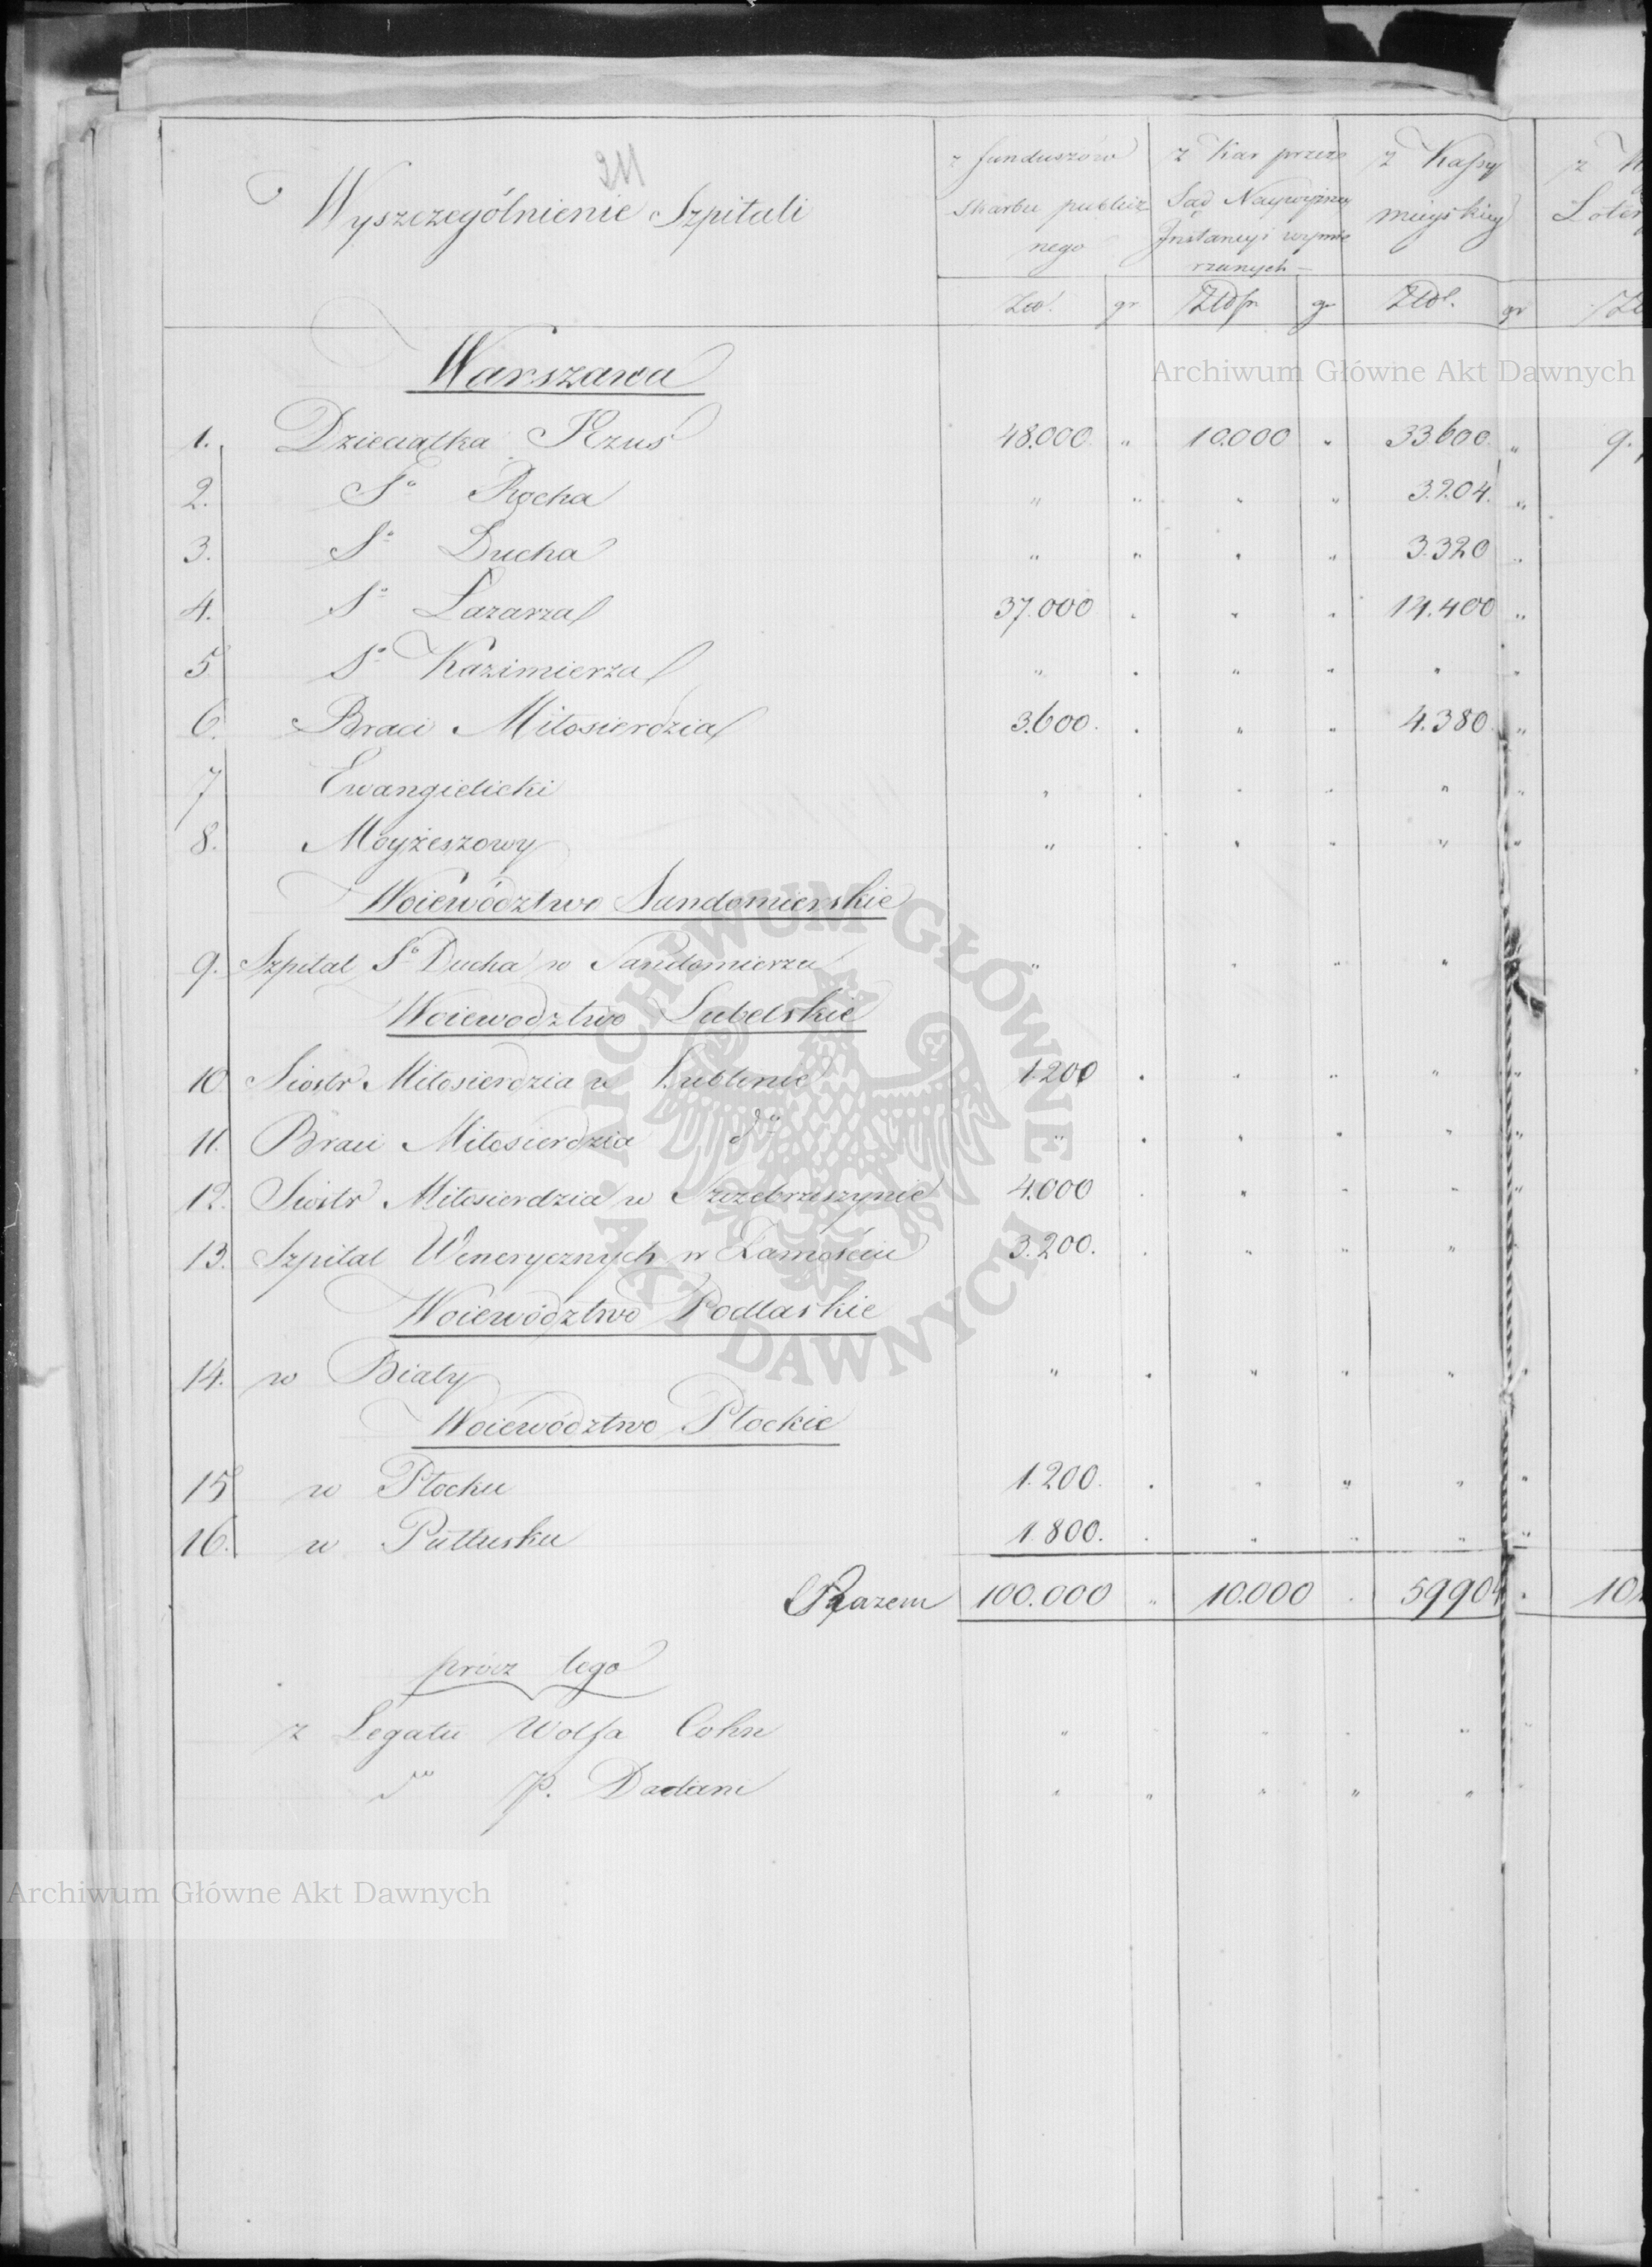 211
Wyszczególnienie Szpitali
z funduszów
skarbu publicz
nego
z Kar przez
Sąd Naywyższey
Instancyi wymie
rzanych
z Kassy
mieyskiey
z
Loter
Złp. gr Złotp. gr Złotp. gr Zł
Archiwum Główne Akt Dawnych
Warszawa
1. Dzieciątka Jezus 48.000 " 10.000 " 33.600 " 9.
2. Sº Rocha " " " " 3.204. "
3. Sº Ducha " " " " 3.320 "
4. Sº Lazarza 37.000 " " " 14.400 "
5 Sº Kazimierza " " " " " "
6. Braci Miłosierdzia 3.600. " " " 4.380 "
7 Ewangielicki " " " " " "
8. Moyżeszowy " " " " " "
Woiewództwo Sandomierskie
9. Szpital Sº Ducha w Sandomierzu " " " "
Woiewodztwo Lubelskie
10 Siostr Miłosierdzia w Lublinie 1.200 " " " " "
11. Braci Miłosierdzia dº " " " " " "
12. Siostr Miłosierdzia w Szczebrzeszynie 4.000 " " " " "
13. Szpital Wenerycznych w Zamościu 3.200. " " " "
Woiewództwo Podlaskie
14. w Biały " " " " " "
Woiewództwo Płockie
15 w Płocku 1.200. " " " " "
16. w Pułtusku 1.800. " " " " "
Razem 100.000 " 10.000 " 59904 " 10
prócz tego
z Legatu Wolfa Cohn " " " " " "
dº P. Dadani " " " " "
Archiwum Główne Akt Dawnych
ARCHIWUM GŁÓWNE AKT DAWNYCH